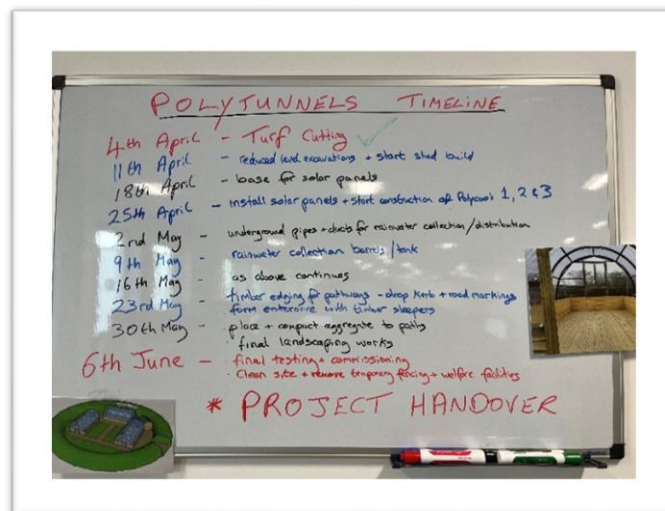 POLYTUNNELS TIMELINE
4th April - Turf Cutting
11th April - reduced level excavations + start shed build
18th April - base for solar panels
25th April - install solar panels + start construction of Polytunnels 1, 2 & 3
2nd May - underground pipes + ducts for rainwater collection/distribution
9th May - rainwater collection barrels/tank
16th May - as above continues
23rd May - timber edging for pathways - drop kerb + road markings
form enterance with timber sleepers
30th May - place + compact aggregate to paths
· final landscaping works
6th June - final testing + commissioning
· Clean site + remove temporary fencing + welfare facilities
* PROJECT HANDOVER